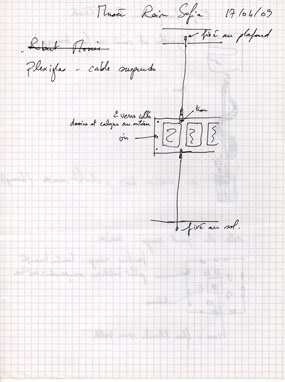 Musée Reina Sofia 17/04/09
fixé au plafond
Robert Morris
Plexiglas - cable suspendu
trou
2 verres collés
dessins et calques au milieu
vis
fixé au sol.